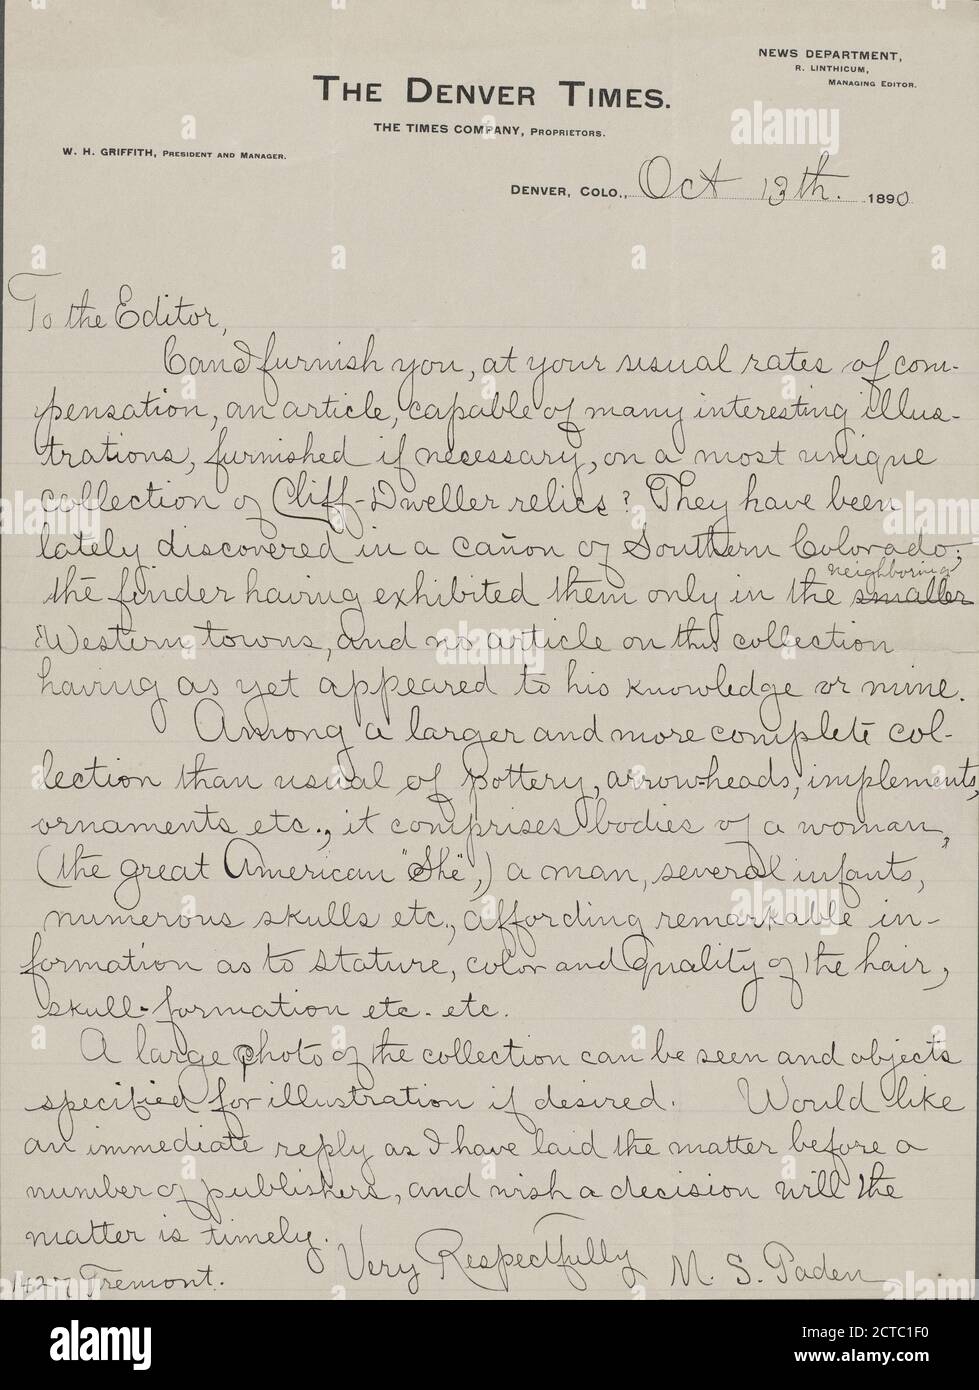 NEWS DEPARTMENT,
R. LINTHICUM,
MANAGING EDITOR.
THE DENVER TIMES.
THE TIMES COMPANY, PROPRIETORS.
W. H. GRIFFITH, PRESIDENT AND MANAGER.
DENVER, COLO., Oct 13th. 1890
To the Editor,
Can I furnish you, at your usual rates of com-
pensation, an article, capable of many interesting illus-
trations, furnished if necessary, on a most unique
collection of Cliff-Dweller relics? They have been
lately discovered in a cañon of Southern Colorado,
neighboring
the finder having exhibited them only in the smaller
Western towns, and no article on this collection
having as yet appeared to his knowledge or mine.
Among a larger and more complete col-
lection than usual of pottery, arrow-heads, implements,
ornaments etc., it comprises bodies of a woman,
(the great American "She",) a man, several infants,
numerous skulls etc., affording remarkable in-
formation as to stature, color and quality of the hair,
skull-formation etc. etc.
A large photo of the collection can be seen and objects
specified for illustration if desired. Would like
an immediate reply as I have laid the matter before a
number of publishers, and wish a decision while the
matter is timely.
Very Respectfully
M. S. Paden
1427 Tremont.
alamy
Image ID: 2CTC1F0
www.alamy.com